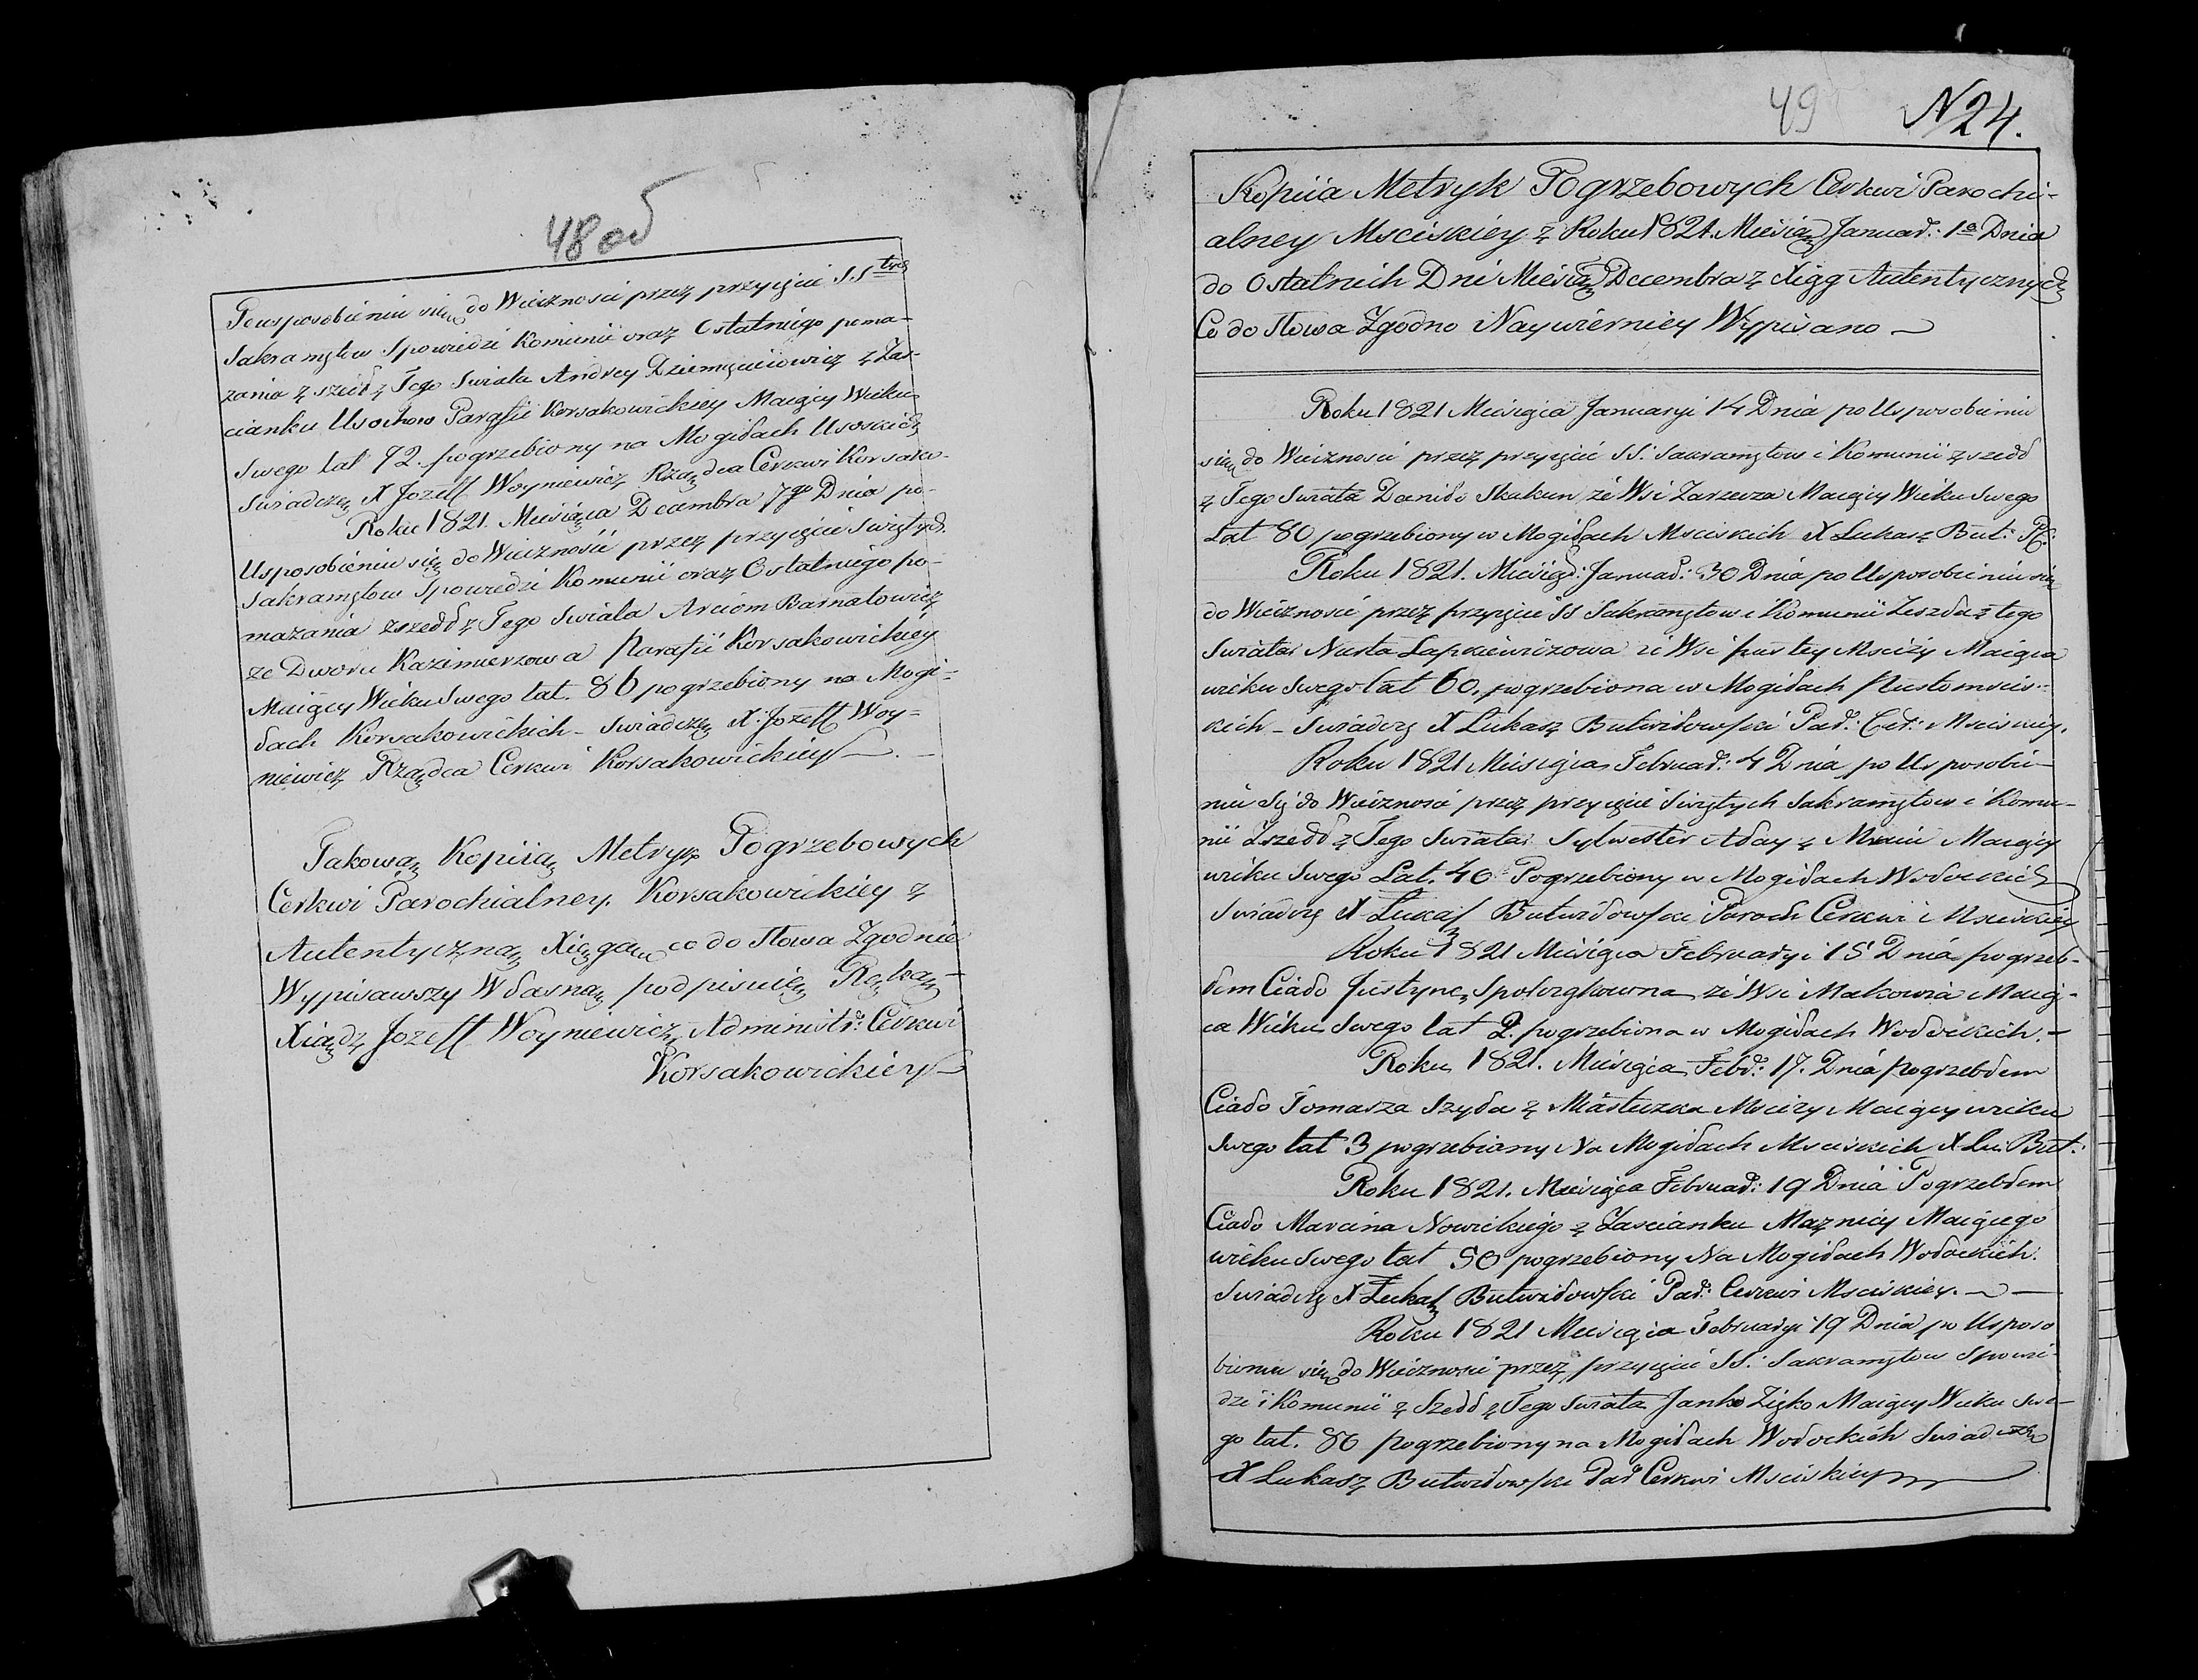 48 об
Po usposobieniu się do Wieczności przez przyięcie S.S tych
Sakramętow Spowiedzi Komunii oraz Ostatniego poma-
zania z szedł z Tego Swiata Andrey z Zaś-
cianku Usochow Parafii Korsakowickiey Maiący Wieku
Swego lat 72. pogrzebiony na Mogiłach Usoskich
Swiadczę X Jozeff Woyniewicz Rządca Cerkwi Korsako-
Roku 1821. Miesiąca Decembra 7go Dnia po
Usposobieniu się do Wieczności przez przyięcie Swiętych
Sakramętow Spowiedzi Komunii oraz Ostatniego po-
mazania zszedł z Tego Swiata Arciom Barnatowicz
ze Dworu Kazimierzowa Parafii Korsakowickiey
Maiący Wieku Swego lat. 86 pogrzebiony na Mogi-
łach Korsakowickich - Swiadczę X: Jozeff Woy-
niewicz Rządca Cerkwi Korsakowickiey
Takową Kopiią Metryk Pogrzebowych
Cerkwi Parochialney Korsakowickiey z
Autentyczną Xięgą co do Słowa Zgodnie
Wypisawszy Własną podpisuię Ręką
Xiądz Jozeff Woyniewicz Administr: Cerkwi
Korsakowickiey
49 N24.
Kopiia Metryk Pogrzebowych Cerkwi Parochi-
alney Msciskiey z Roku 1821. Miesiąca Januar: 1o Dnia
do Ostatnich Dni Miesiąca Decembra z Xiąg Autentycznych
Co do Słowa Zgodno Naywierniey Wypisano
Roku 1821 Miesiąca Januaryi 14 Dnia po Usposobieniu
się do Wieczności przez przyięcie SS: Sakramętow i Komunii z szedł
z Tego Swiata Daniło Skakun ze Wsi Zarzecza Maiący Wieku Swego
Lat 80 pogrzebiony w Mogiłach Msciskich X Lukasz But:
Roku 1821. Miesiąc: Januar: 30 Dnia po Usposobieniu się
do Wieczności przez przyięcie SS Sakramętow i Komunii Zeszła z tego
Swiata Nasta Lapkiewiczowa ze Wsi pustey Mscizy Maiąca
wieku Swego lat 60. pogrzebiona w Mogiłach Pustomscis-
kich - Swiadczę X Lukasz Butwiłowski Par: Cer: Msciskiey.
Roku 1821 Miesiąca Februar: 4 Dnia po Usposobie-
niu Się do Wieczności przez przyięcie Swiętych Sakramętow i Komu-
nii Zszedł z Tego Swiata Sylwester Aday z Maiący
wieku Swego Lat. 40 Pogrzebiony w Mogiłach Wołockich
Swiadczę X Lukasz Butwiłowski Paroch Cerkwi Msciskiey
Roku 1821 Miesiąca Februaryi 15 Dnia pogrzeb-
łem Ciało Justynę ze Wsi Makowia Maią-
ca Wieku Swego lat 2. pogrzebiona w Mogiłach Wołockich. -
Roku 1821. Miesiąca Febr: 17. Dnia pogrzebłem
Ciało Tomasza Szyda z Miasteczka Mscizy Maiący wieku
Swego lat 3 pogrzebiony Na Mogiłach Msciskich X Lu: But:
Roku 1821. Miesiąca Februar: 19 Dnia Pogrzebłem
Ciało Marcina Nowickiego z Zascianku Maznicy Maiącego
wieku Swego lat 50 pogrzebiony Na Mogiłach Wołockich.
Swiadczę X Lukasz Butwiłowski Par: Cerkwi Msciskiey. -
Roku 1821 Miesiąca Februaryi 19 Dnia po Usposo
bieniu się do Wieczności przez przyięcie SS: Sakramętow Spowie-
dzi i Komunii z Szedł z Tego Swiata Janko Zięko Maiący Wieku Swe-
go lat. 86 pogrzebiony na Mogiłach Wołockich Swiadczę
X Lukasz Butwiłowski Par Cerkwi Msciskiey